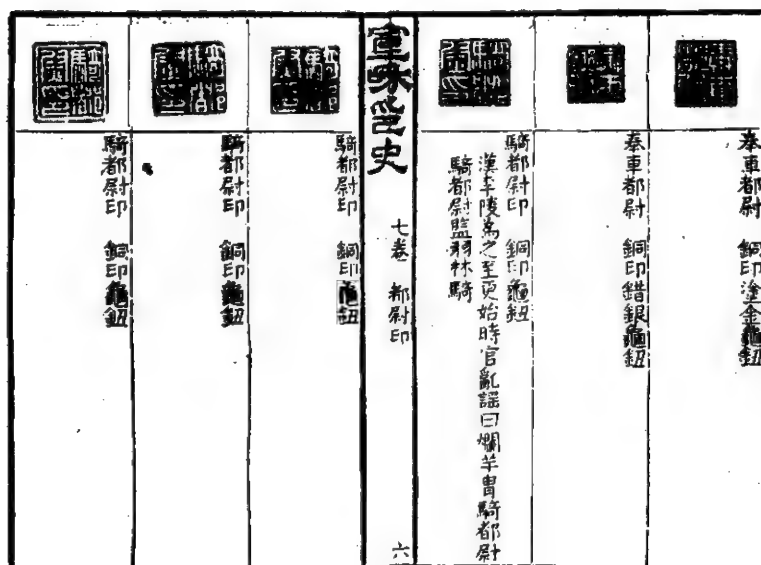 奉車都尉 銅印塗金龜鈕
奉車都尉 銅印錯銀龜鈕
騎都尉印 銅印龜鈕
漢李陵為之至更始時官亂謠曰爛羊胃騎都尉
騎都尉監羽林騎
宣和印史 七卷 都尉印 六
騎都尉印 銅印龜鈕
騎都尉印 銅印龜鈕
騎都尉印 銅印龜鈕